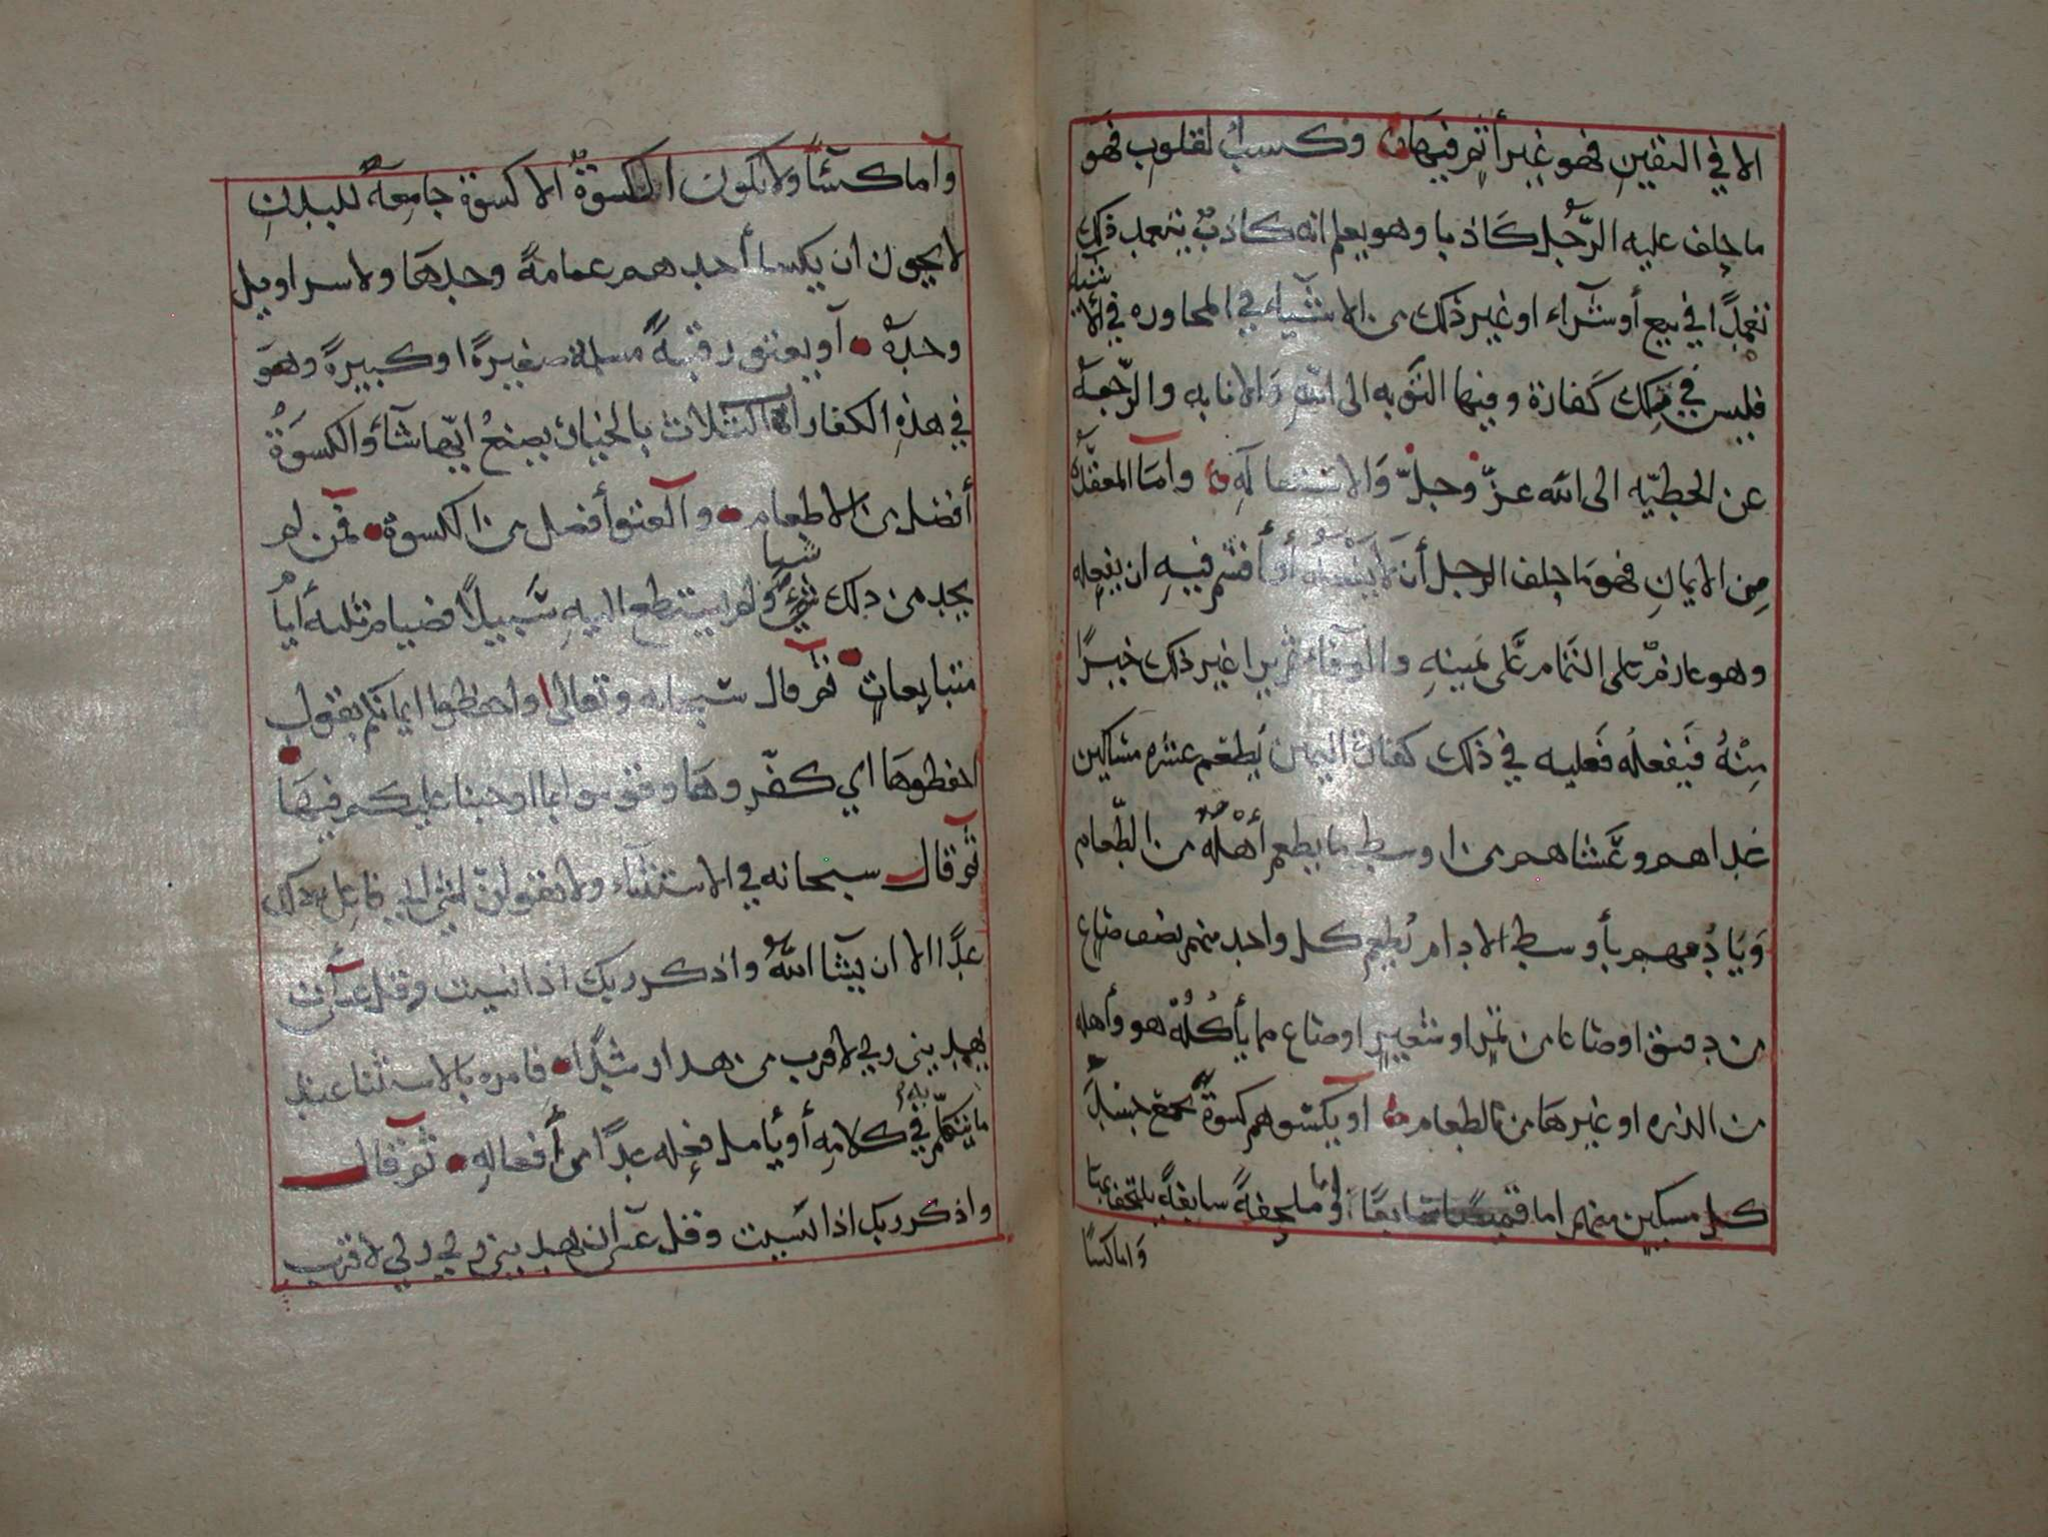 الا في اليقين فهو غير أثم فيها وكسب لقلوب فهو
ما حلف عليه الرَّجُل كَاذبا وهو يعلم انه كاذبٌ يتعمد ذلك
تعمدًا في بيع أو شرآء او غير ذلك من الاشيآء في المحاوره في الأ
شيه
فليس في ذلك كَفارة وفيها التوبه الى اللهِ وَالانابه والرّجعة
عن الخطيّه الى الله عزّ وجلّ وَالاستغفار لَهِ وآمَا المعقّده
مِن الايمانِ فهو مَا حلف الرجل أن لَا يفعله أو أقسم فيهِ ان يفعله
وهو عازمٌ على التمام عَلى يَمينهِ والوَفَاء ثم يرا غير ذلك خيرًا
مِنْهُ فَيفعلُه فَعليه في ذلك كفارة اليمين يُطعَم عشره مسَاكين
غداهم وعَشاهم من اوسط ما يُطعم أهْلَهُ من الطّعام
وَيَادُمهم بأوسط الادام يُطعِم كل واحد منهم نصف صَاع
من دقيق او صَاعا من تمرٍ او شعيرٍ او صَاع مما يأكُلُهُ هو وأهله
من الذره او غيرهَا من الطعام او يكسوهم كسوةً تجمع جسد
كل مسكين منهم اما قميصًا سَابغًا او اما ملحفةً سابغةً يلتحف بها
وَاما كسًا
وآما كسَآءً ولا تكون الكسوةُ الا كسوة جامِعةً للبدنِ
لا يجوز ان يكسا أحدهم عمامةً وحدهَا ولا سراويل
وحدهُ آو يعتق رقبةً مسلمة صغيرةً او كبيرةً وهو
في هذهِ الكفارات الثلاث بالخيار يصنعُ ايّها شآء والكسوَةُ
أفضل من الاطعام والعتق أفضل من الكسوة فمن لم
يجد من ذلك شيء ولم يستطع اليهِ سَبيلاً فصيام ثلثه أيامٍ
شيا
متتابعاتٍ ثم قال سبحانه وتعالى واحفظوا ايمانكم يقول
احفظوهَا اي كفّروهَا وقوموا بما اوجبنا عليكم فيهَا
ثم قال سبحانه في الاستثنآء ولا تقولنّ لشيء اني فاعل ذلك
غدًا الا ان يشآ اللهُ واذكر ربك اذا نسيت وقل عسَى أن
يهديني ربي لاقرب من هذا رشدًا فامره بالاستثنا عند
ما يتكلّم به في كلامِه أو يأمل فعله غدًا من أفعالهِ ثم قال
واذكر ربك اذا نسيت وقل عسَى ان يهديني ربي لاقرب